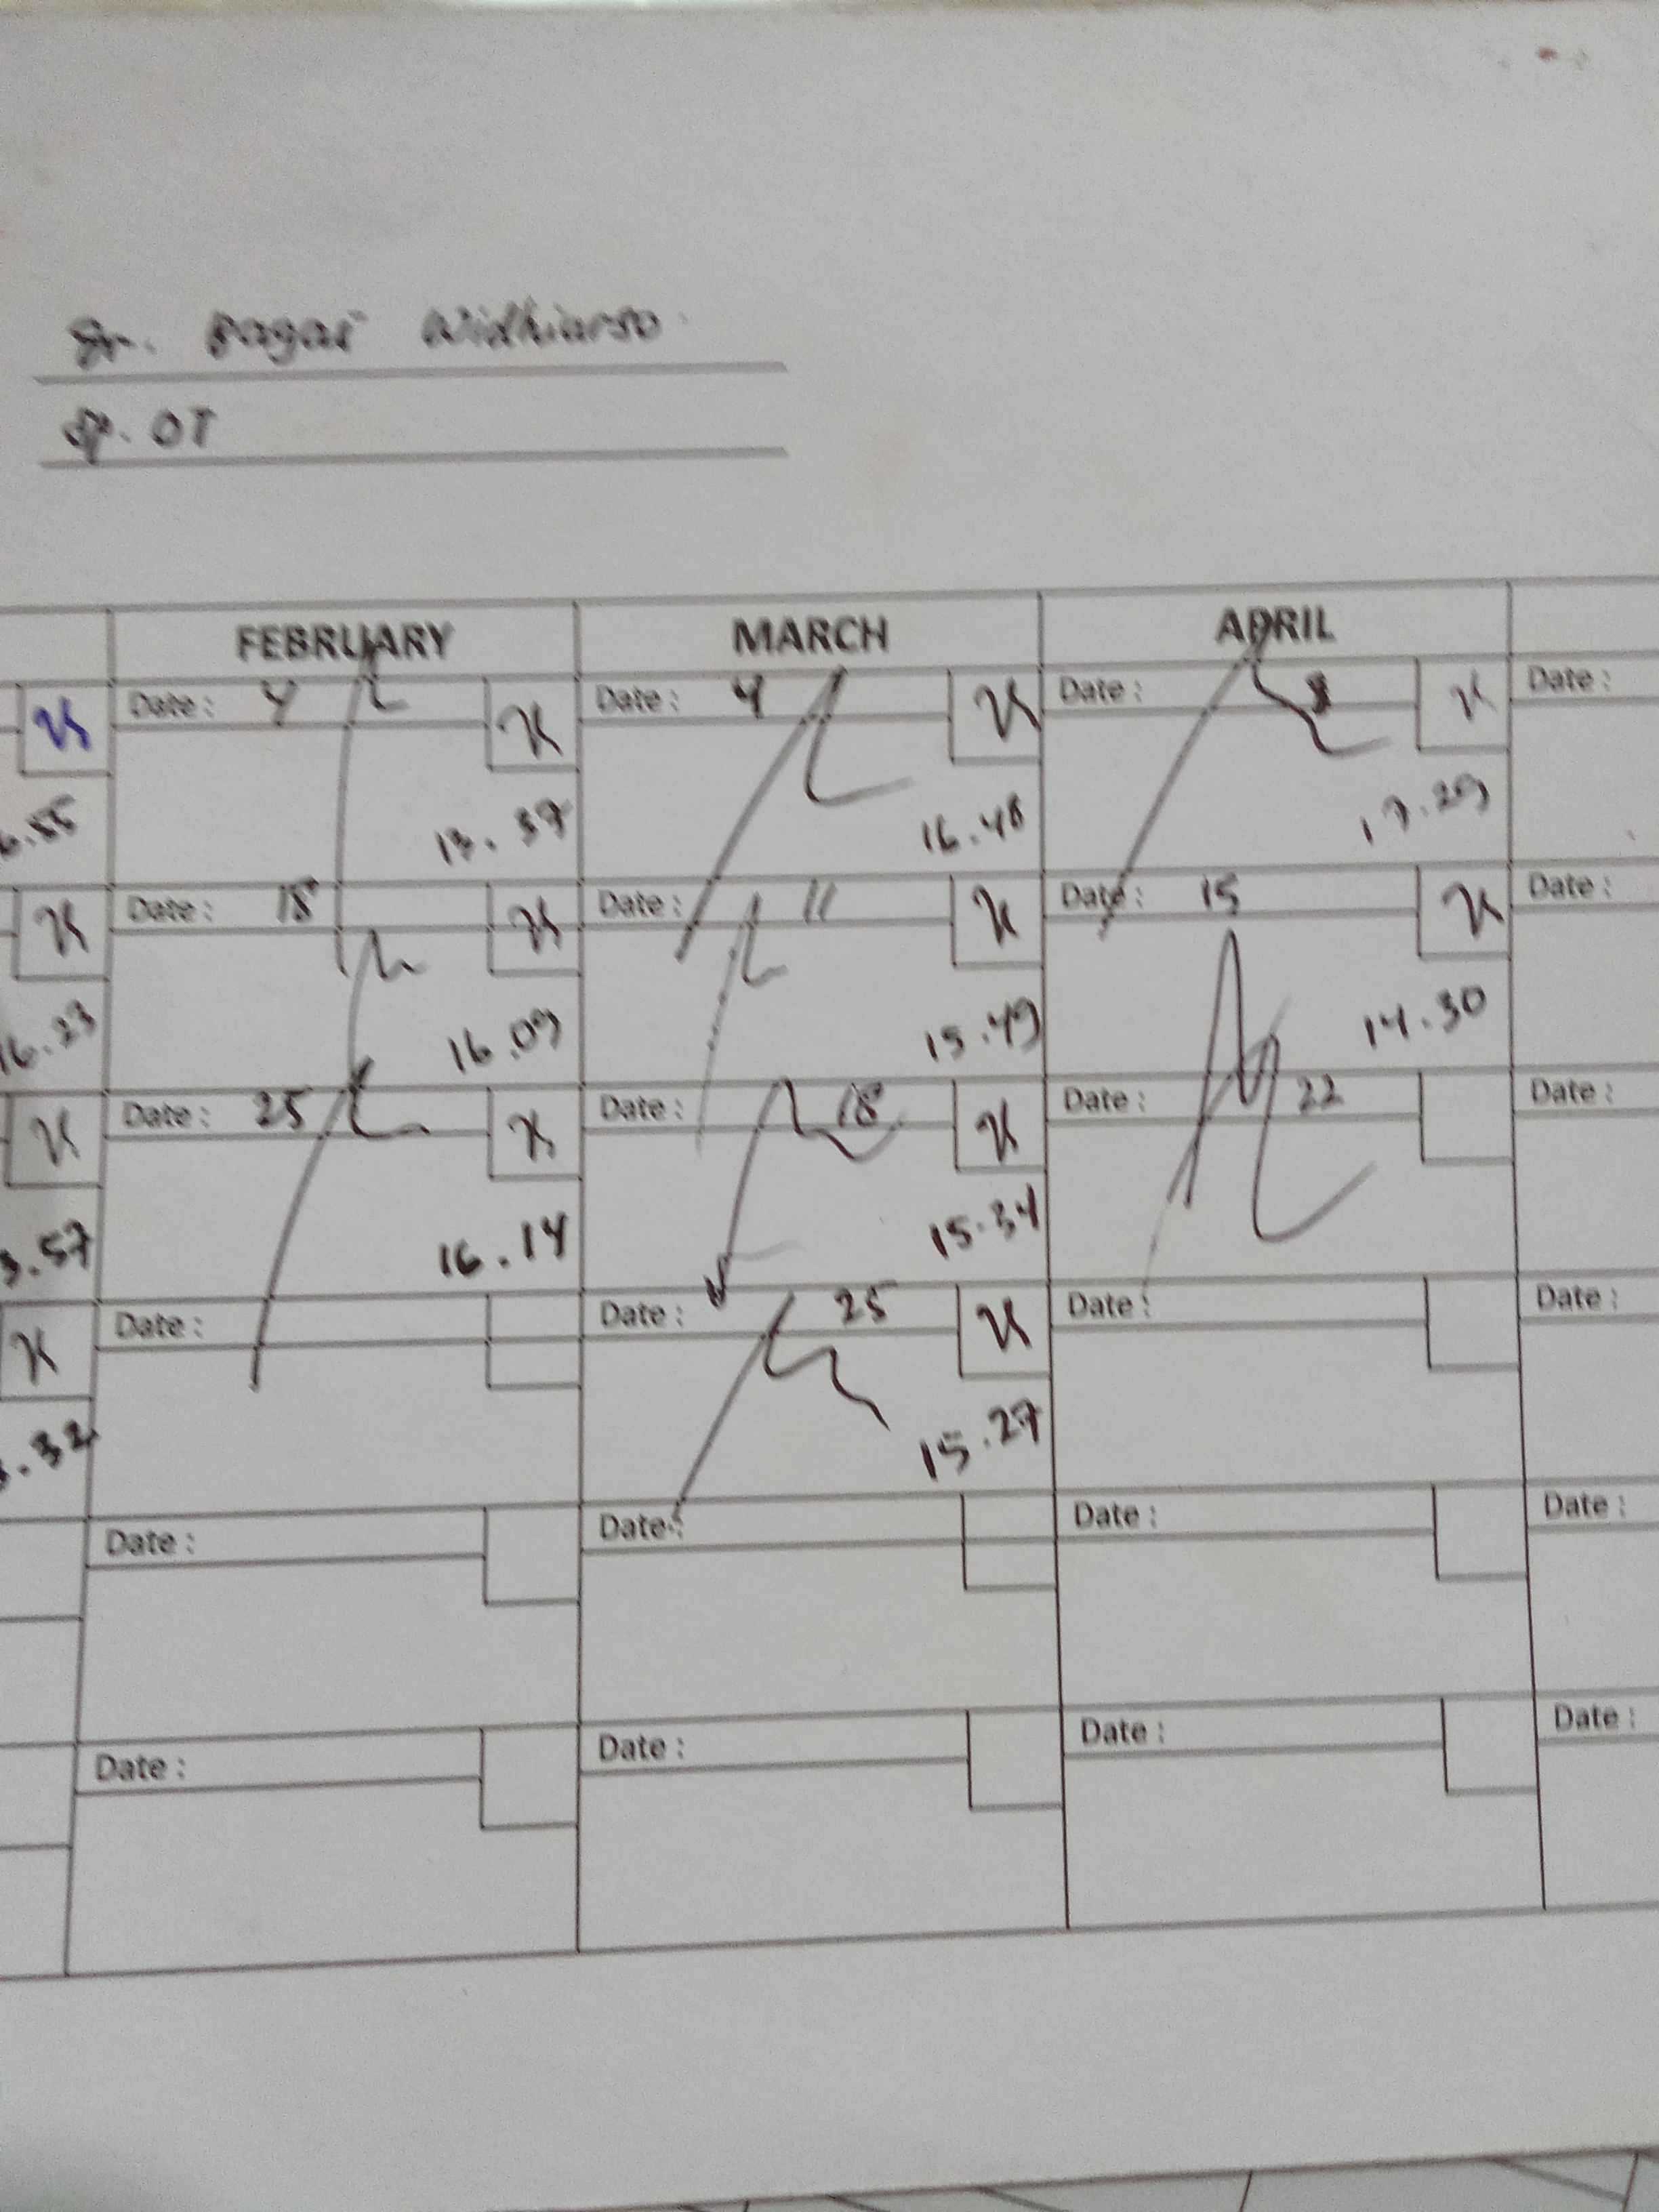 dr. Bagas Widhiarso
Sp. OT
FEBRUARY MARCH APRIL
Date : 4 Date : 4 Date : 8 Date :
13.37 16.48 17.29
Date : 18 Date : 11 Date : 15 Date :
16.23 16.09 15.49 14.30
Date : 25 Date : 18 Date : 22 Date :
.57 16.14 15.34
Date : Date : 25 Date : Date :
.32 15.27
Date : Date : Date : Date :
Date : Date : Date : Date :